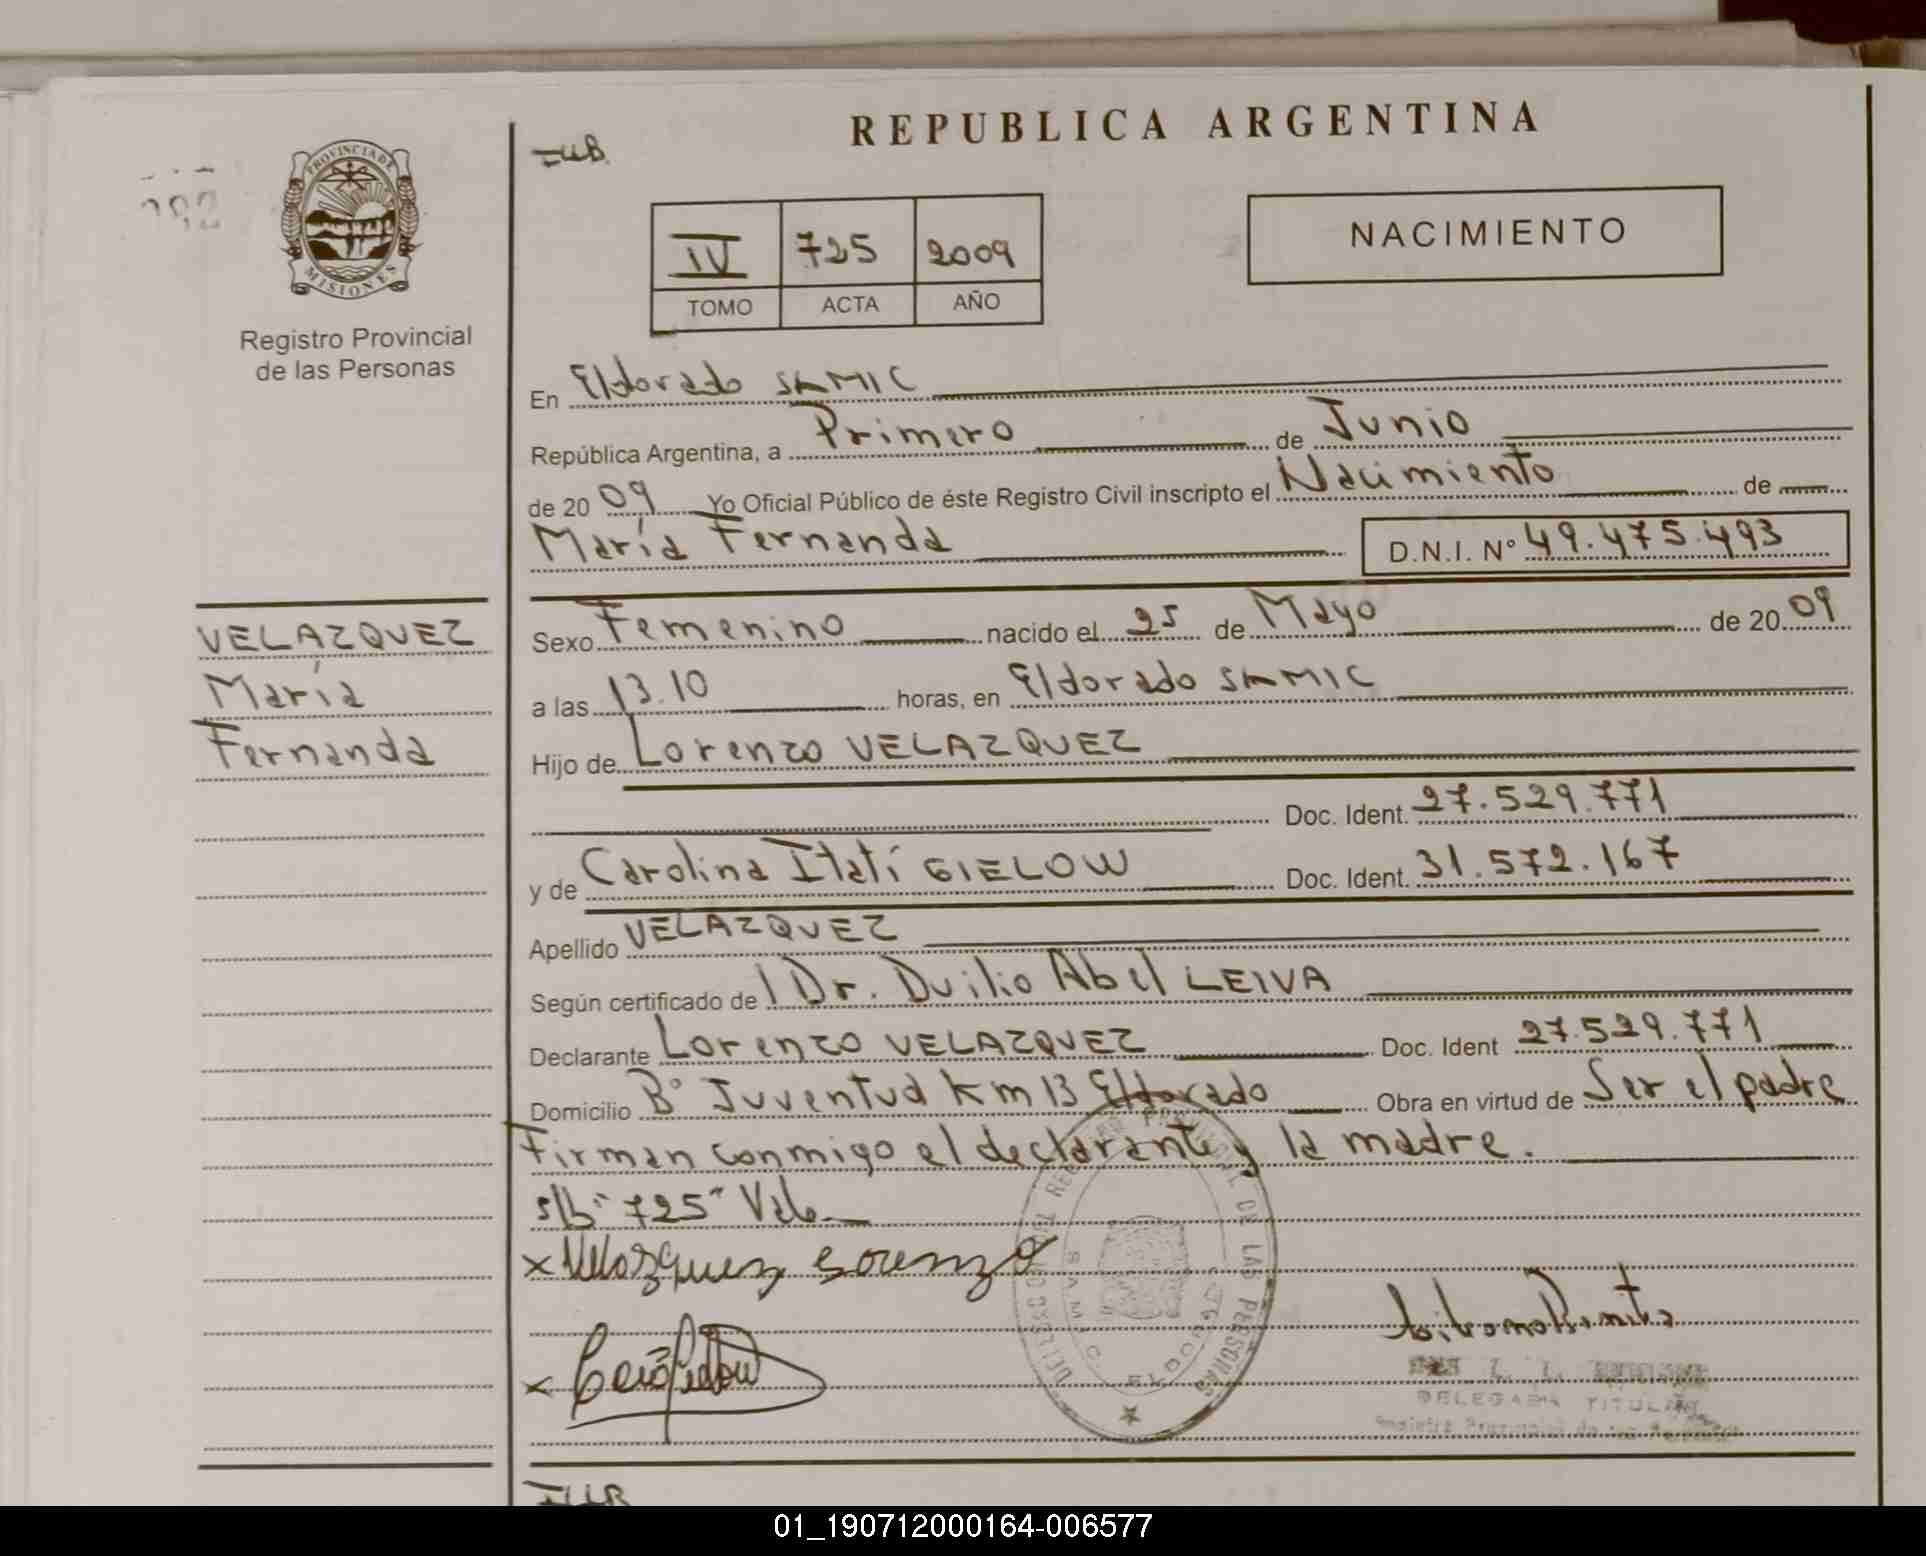 PROVINCIA DE
MISIONES
Registro Provincial
de las Personas
VELAZQUEZ
María
Fernanda
REPUBLICA ARGENTINA
IV 725 2009
TOMO ACTA AÑO
NACIMIENTO
En Eldorado SAMIC
República Argentina, a Primero de Junio
de 2009 Yo Oficial Público de éste Registro Civil inscripto el Nacimiento de
María Fernanda D.N.I. Nº 49.475.493
Sexo Femenino nacido el 25 de Mayo de 2009
a las 13.10 horas, en Eldorado SAMIC
Hijo de Lorenzo VELAZQUEZ
Doc. Ident. 27.529.771
y de Carolina Itatí GIELOW Doc. Ident. 31.572.167
Apellido VELAZQUEZ
Según certificado de l Dr. Duilio Abel LEIVA
Declarante Lorenzo VELAZQUEZ Doc. Ident 27.529.771
Domicilio Bº Juventud Km 13 Eldorado Obra en virtud de Ser el padre
Firman conmigo el declarante y la madre.
s/b "725" Vale
x Velazquez Lorenzo
x
DELEGACION REGISTRO PROVINCIAL DE LAS PERSONAS
S.A.M.I.C. ELDORADO
DELEGADA TITULAR
01_190712000164-006577